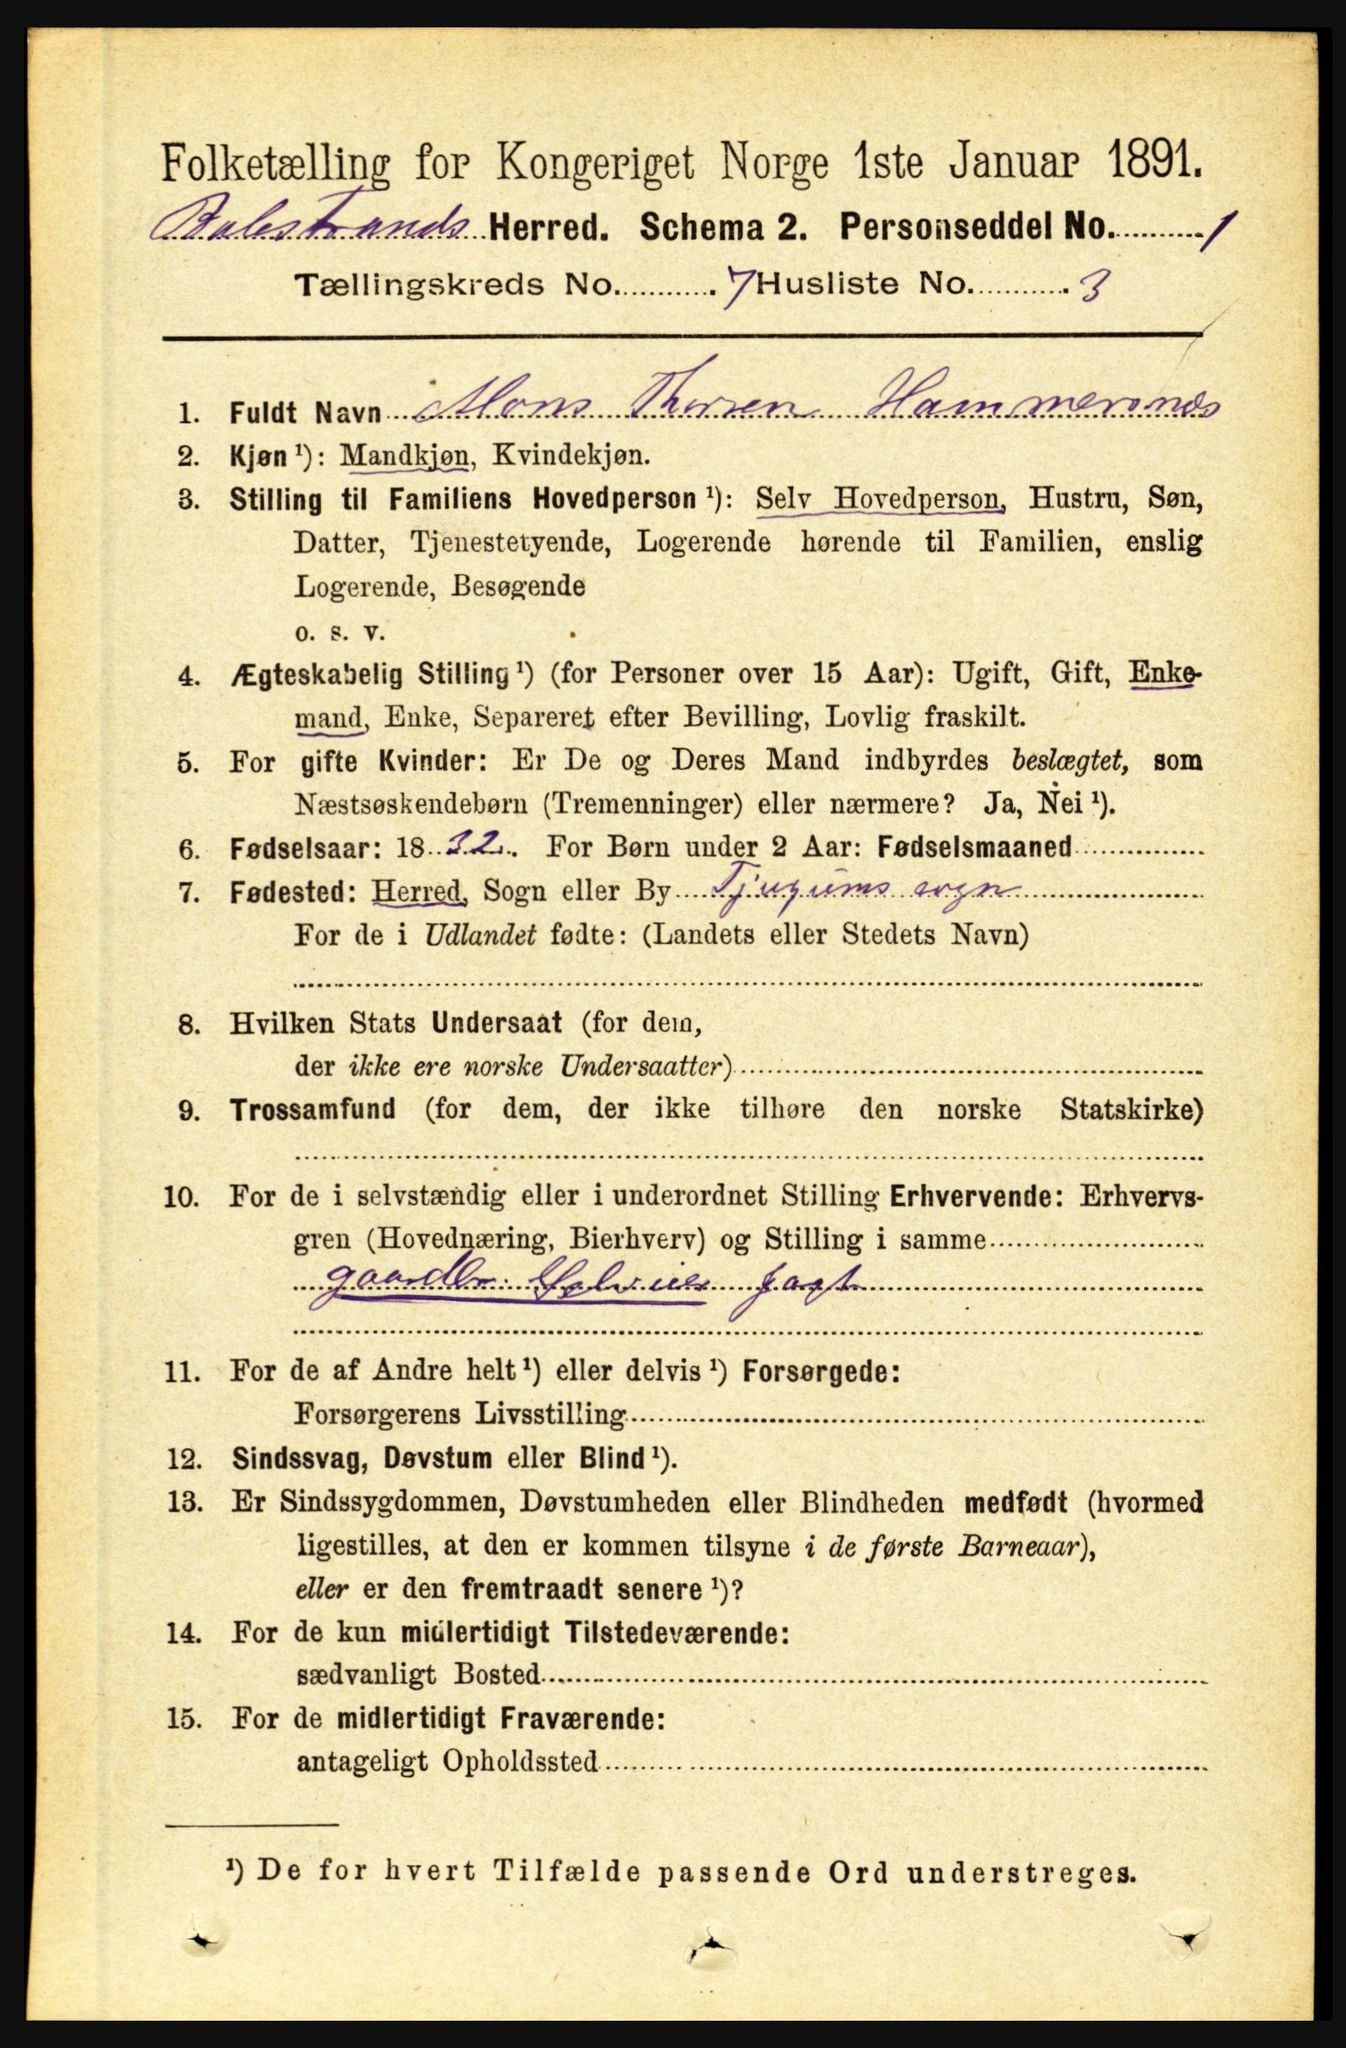 Folketælling for Kongeriget Norge 1ste Januar 1891.
Balestrands Herred. Schema 2. Personseddel No. 1
Tællingskreds No. 7 Husliste No. 3
1. Fuldt Navn Mons Thorsen Hammersnes
2. Kjøn ¹): Mandkjøn, Kvindekjøn.
3. Stilling til Familiens Hovedperson ¹): Selv Hovedperson, Hustru, Søn,
Datter, Tjenestetyende, Logerende hørende til Familien, enslig
Logerende, Besøgende
o. s. v.
4. Ægteskabelig Stilling ¹) (for Personer over 15 Aar): Ugift, Gift, Enke-
mand, Enke, Separeret efter Bevilling, Lovlig fraskilt.
5. For gifte Kvinder: Er De og Deres Mand indbyrdes beslægtet, som
Næstsøskendebørn (Tremenninger) eller nærmere? Ja, Nei ¹).
6. Fødselsaar: 1832. For Børn under 2 Aar: Fødselsmaaned
7. Fødested: Herred, Sogn eller By Tjugums sogn
For de i Udlandet fødte: (Landets eller Stedets Navn)
8. Hvilken Stats Undersaat (for dem,
der ikke ere norske Undersaatter)
9. Trossamfund (for dem, der ikke tilhøre den norske Statskirke)
10. For de i selvstændig eller i underordnet Stilling Erhvervende: Erhvervs-
gren (Hovednæring, Bierhverv) og Stilling i samme
gaardbr. Selveier
11. For de af Andre helt ¹) eller delvis ¹) Forsørgede:
Forsørgerens Livsstilling
12. Sindssvag, Døvstum eller Blind ¹).
13. Er Sindssygdommen, Døvstumheden eller Blindheden medfødt (hvormed
ligestilles, at den er kommen tilsyne i de første Barneaar),
eller er den fremtraadt senere ¹)?
14. For de kun midlertidigt Tilstedeværende:
sædvanligt Bosted
15. For de midlertidigt Fraværende:
antageligt Opholdssted
¹) De for hvert Tilfælde passende Ord understreges.